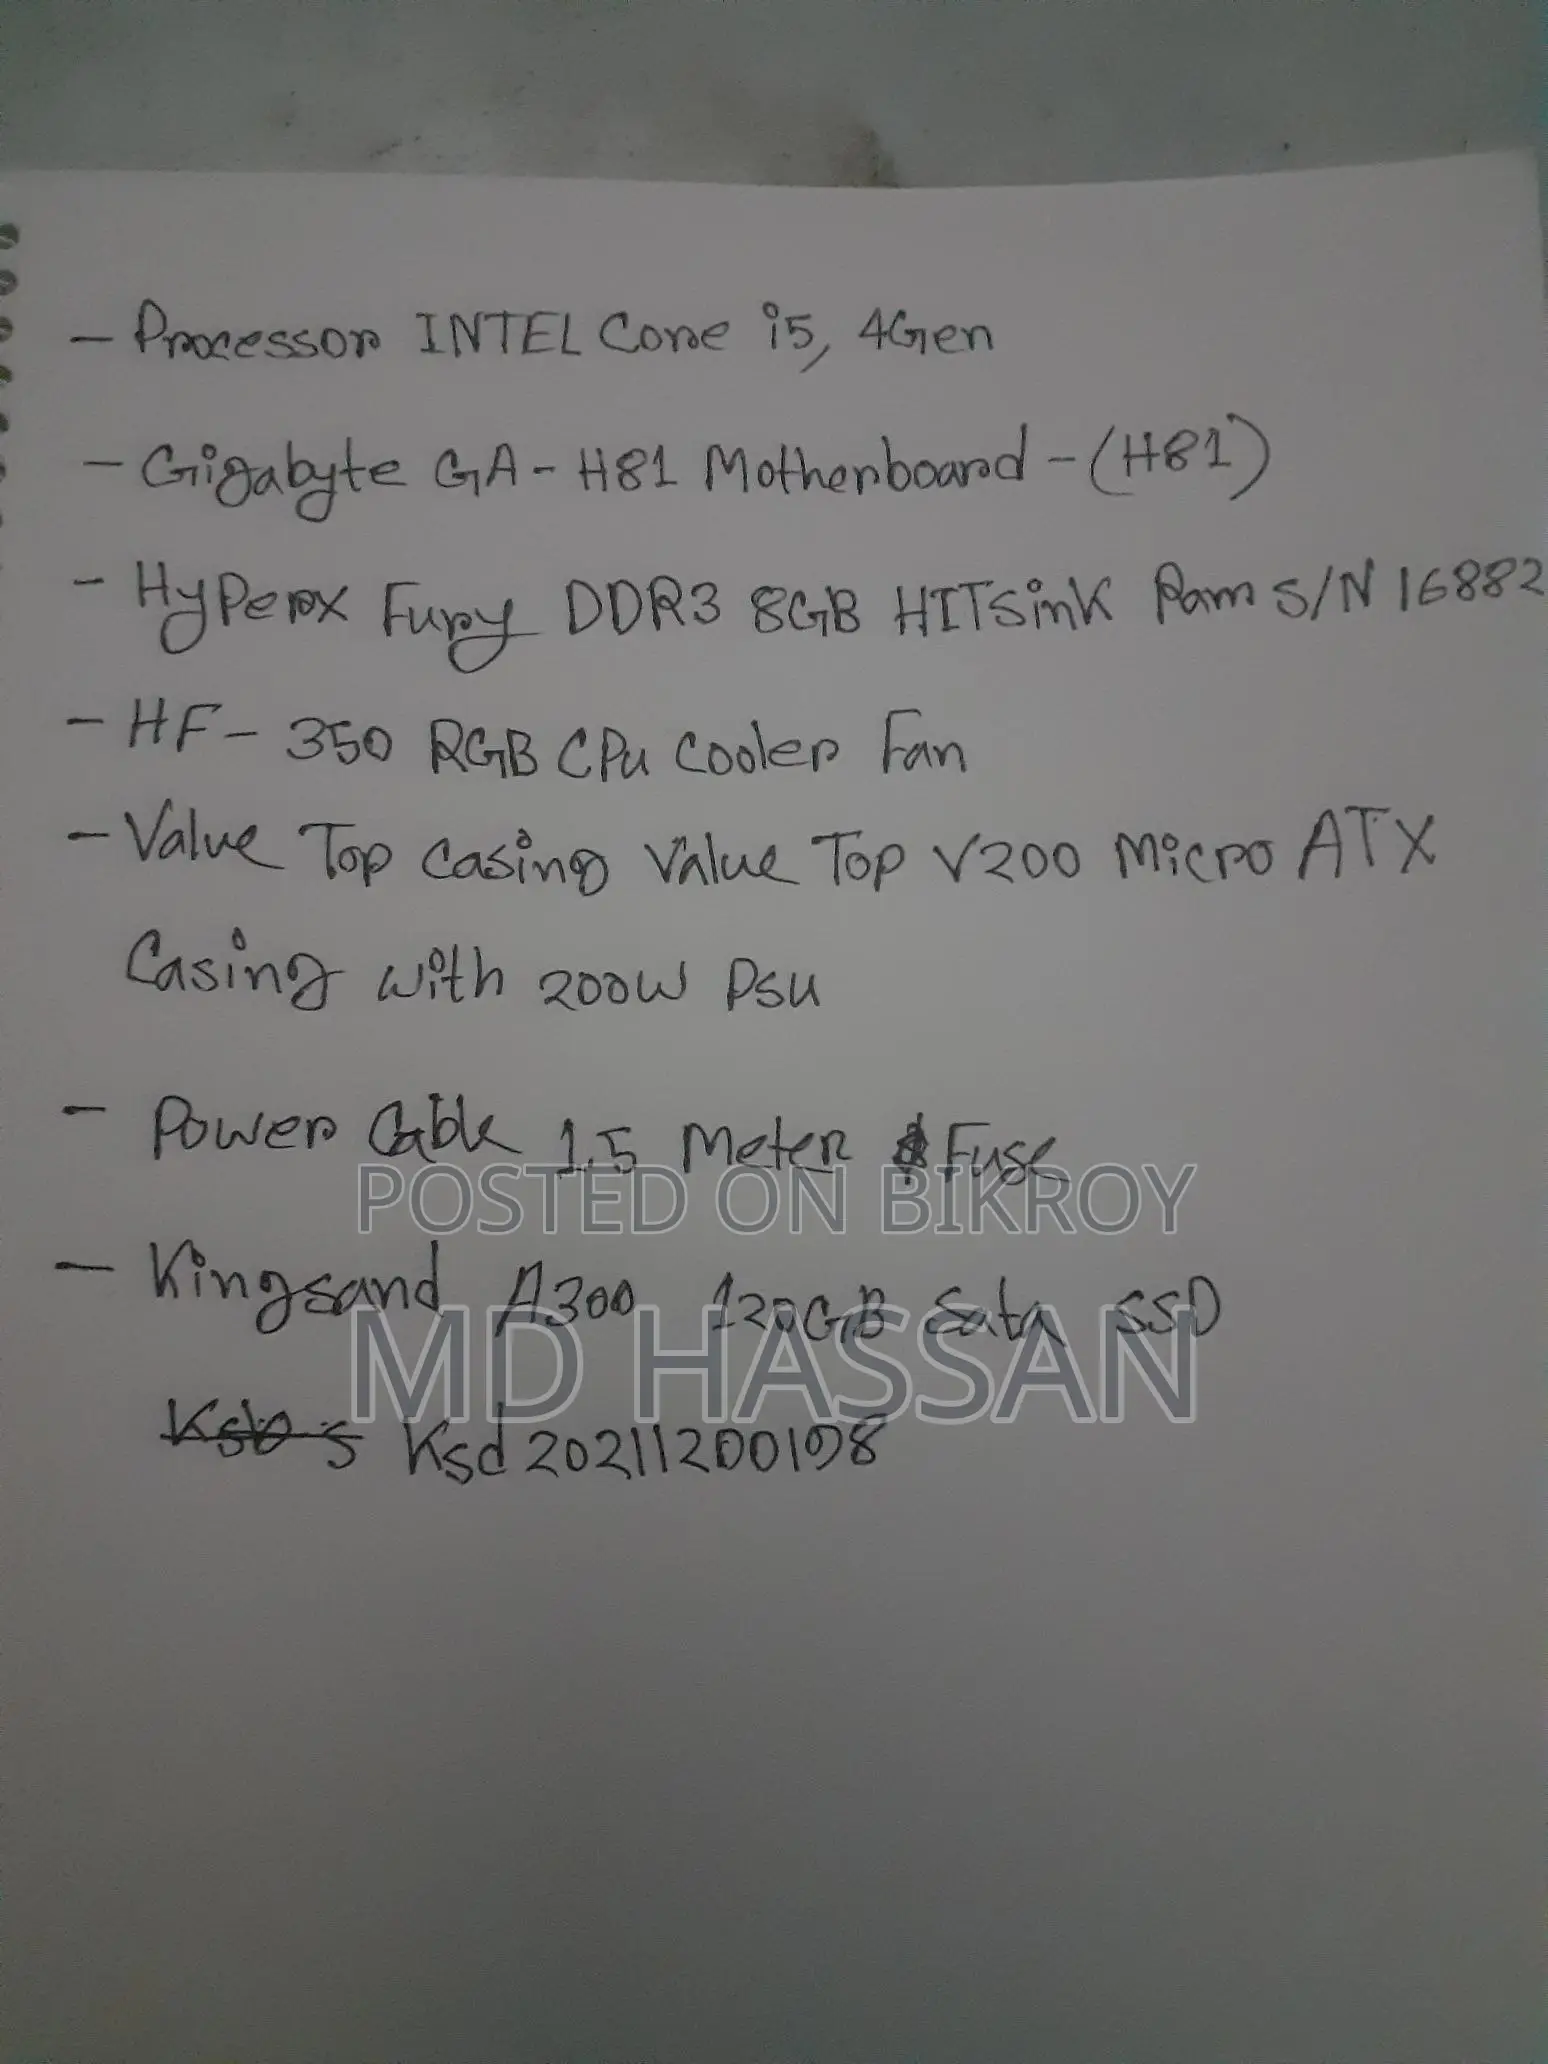 - Processor INTEL Core i5, 4Gen
- Gigabyte GA-H81 Motherboard - (H81)
- HyPerx Fury DDR3 8GB HITSink Ram S/N 16882
- HF- 350 RGB CPu Cooler Fan
- Value Top Casing Value Top V200 Micro ATX
Casing with 200W Psu
- Power Cable 1.5 Meter Fuse
POSTED ON BIKROY
- Kingsand A300 120GB Sata SSD
MD HASSAN
Ksd20211200198